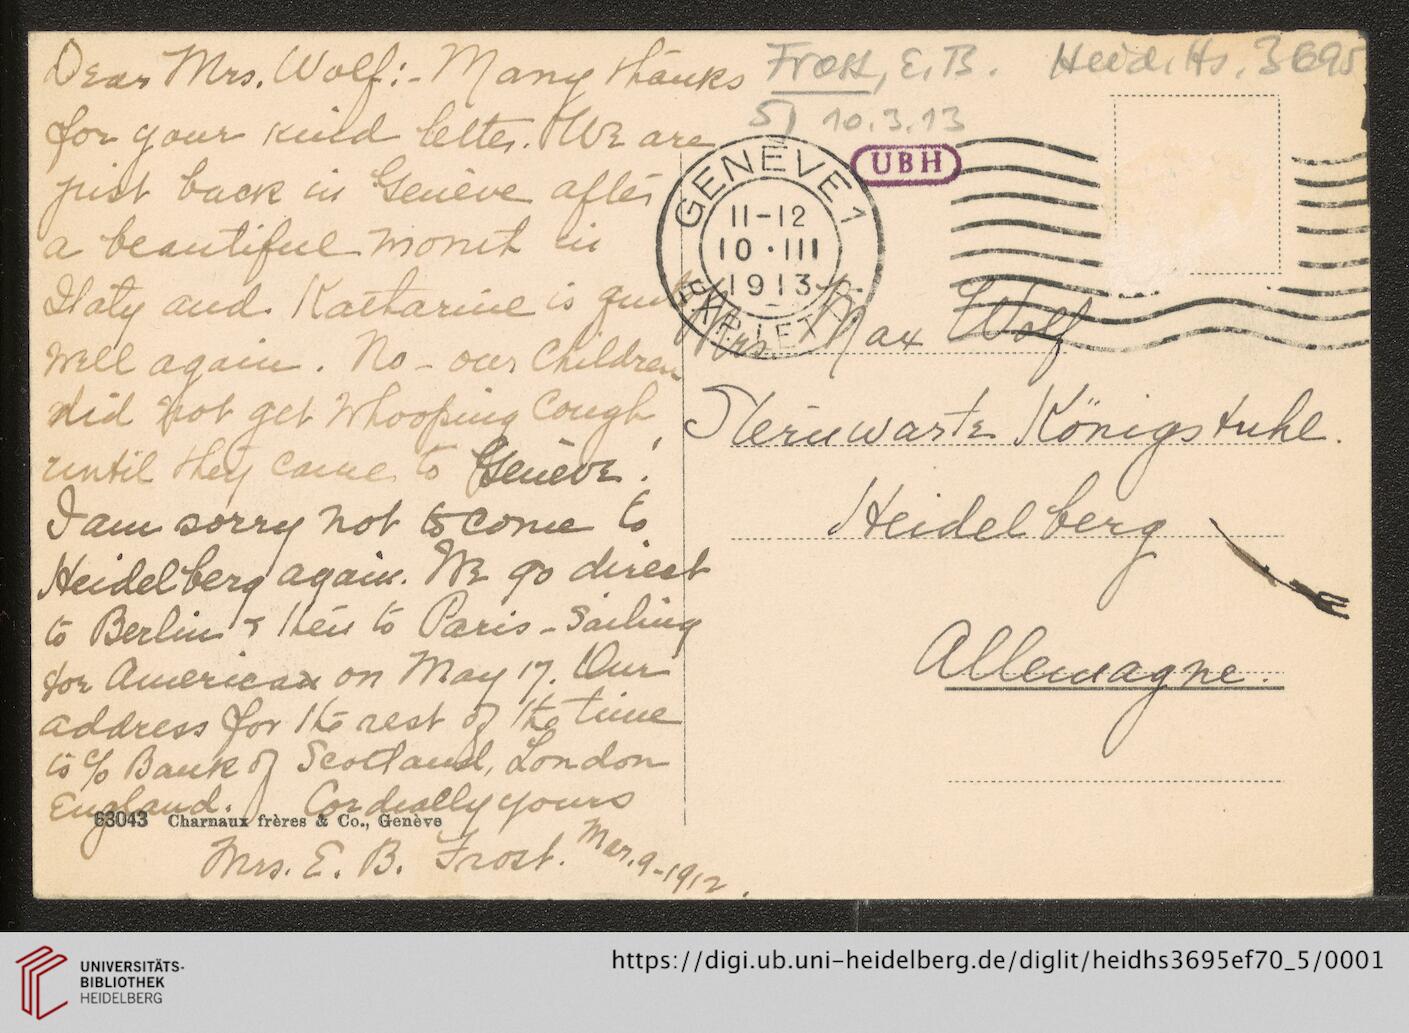 Dear Mrs. Wolf:- Many thanks
for your kind letter. We are
just back in Genève after
a beautiful month in
Italy and Katharine is quite
well again. No - our children
did not get whooping cough
until they came to Genève!
I am sorry not to come to
Heidelberg again. We go direct
to Berlin & then to Paris - sailing
for America on May 17. Our
address for the rest of the time
is c/o Bank of Scotland, London
England. Cordially yours
63043 Charnaux frères & Co., Genève
Mrs. E. B. Frost. Mar. 9 - 1912.
Frost, E. B. Heid. Hs. 3695
5) 10.3.13
UBH
GENÈVE 1
11-12
10·III
1913
EXP. LETTR.
Mrs. Max Wolf
Sternwarte Königstuhl.
Heidelberg
Allemagne.
UNIVERSITÄTS-
BIBLIOTHEK
HEIDELBERG
https://digi.ub.uni-heidelberg.de/diglit/heidhs3695ef70_5/0001